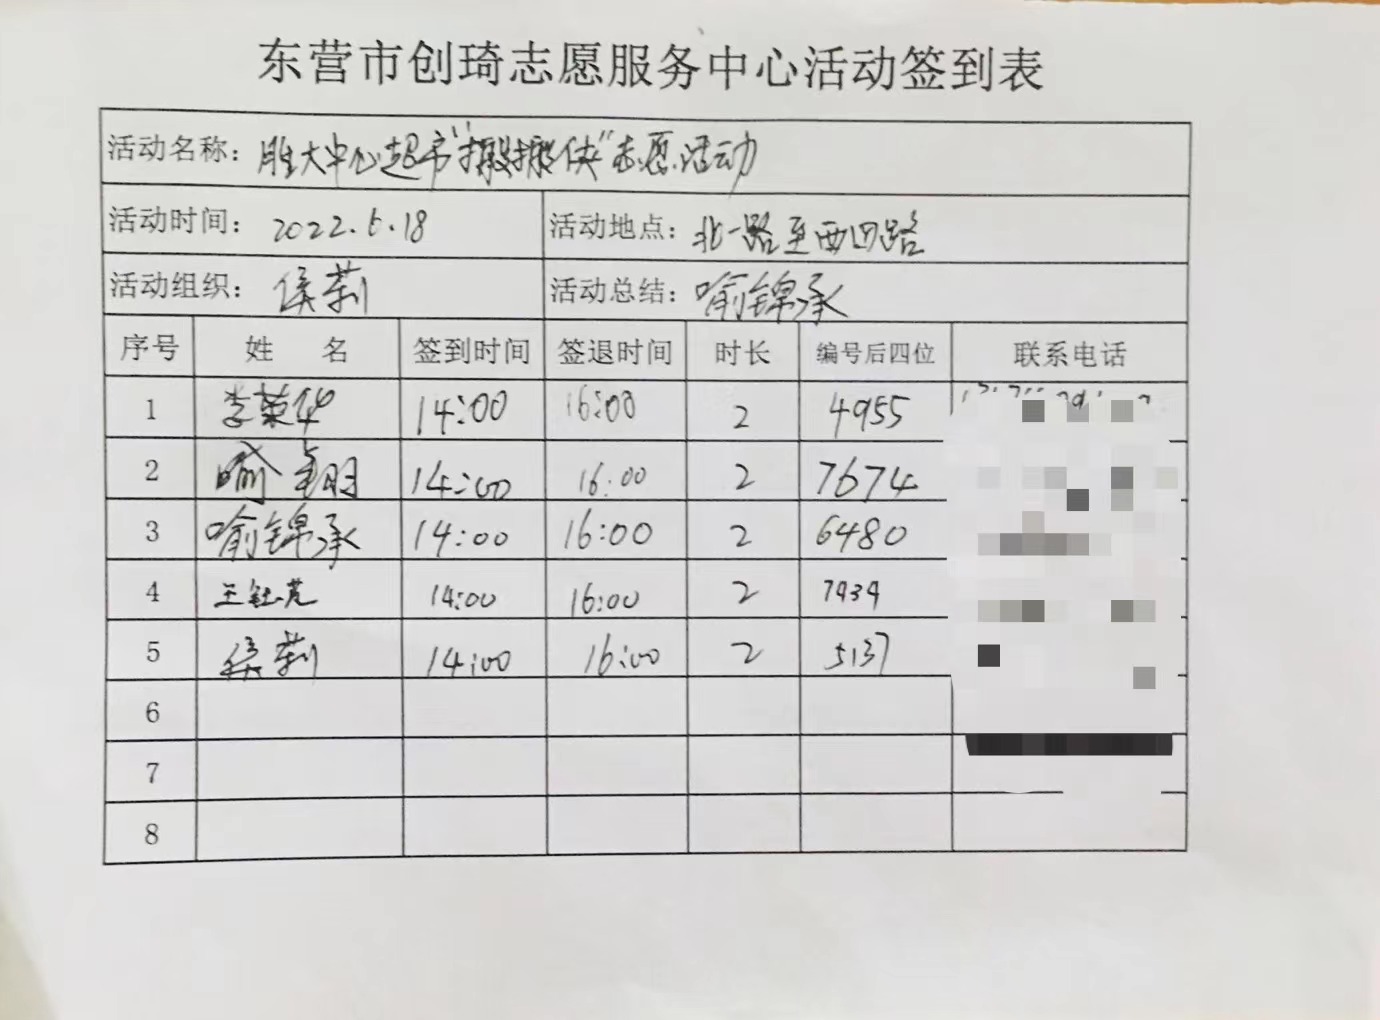 东营市创琦志愿服务中心活动签到表
活动名称：胜大中心超市“搬搬侠”志愿活动
活动时间：2022.6.18 活动地点：北一路至西四路
活动组织：侯莉 活动总结：喻锦承
序号 姓 名 签到时间 签退时间 时长 编号后四位 联系电话
1 李荣华 14:00 16:00 2 4955
2 喻 14:00 16:00 2 7674
3 喻锦承 14:00 16:00 2 6480
4 王钰 14:00 16:00 2 7939
5 侯莉 14:00 16:00 2 5137
6
7
8